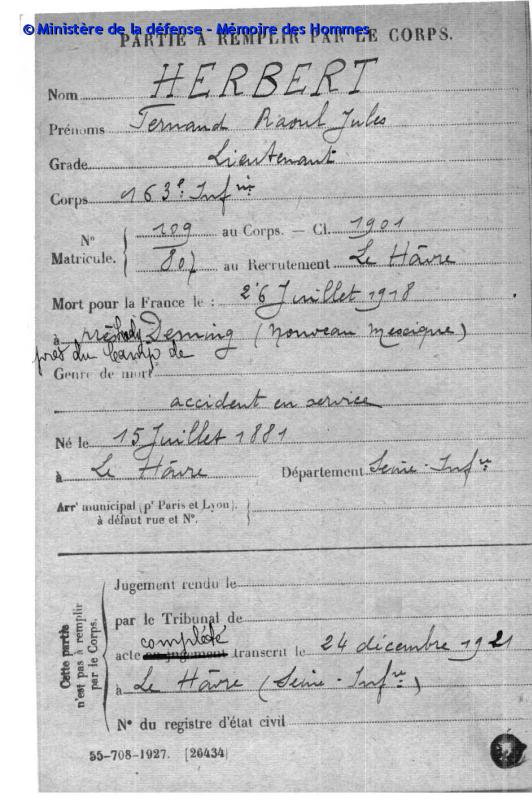 © Ministère de la défense - Mémoire des Hommes
PARTIE À REMPLIR PAR LE CORPS.
Nom HERBERT
Prénoms Fernand Raoul Jules
Grade Lieutenant
Corps 163e Infie
N° Matricule. { 109 au Corps. — Cl. 1901
807 au Recrutement Le Hâvre
Mort pour la France le : 26 Juillet 1918
à près Deming (Nouveau Mexique)
près du Camp de
Genre de mort
accident en service
Né le 15 Juillet 1881
à Le Hâvre Département Seine-Infre
Arrt municipal (pr Paris et Lyon),
à défaut rue et N°.
Cette partie n'est pas à remplir par le Corps.
Jugement rendu le
par le Tribunal de
complété
acte ou jugement transcrit le 24 décembre 1921
à Le Hâvre (Seine-Infre)
N° du registre d'état civil
55-708-1927. [26434]